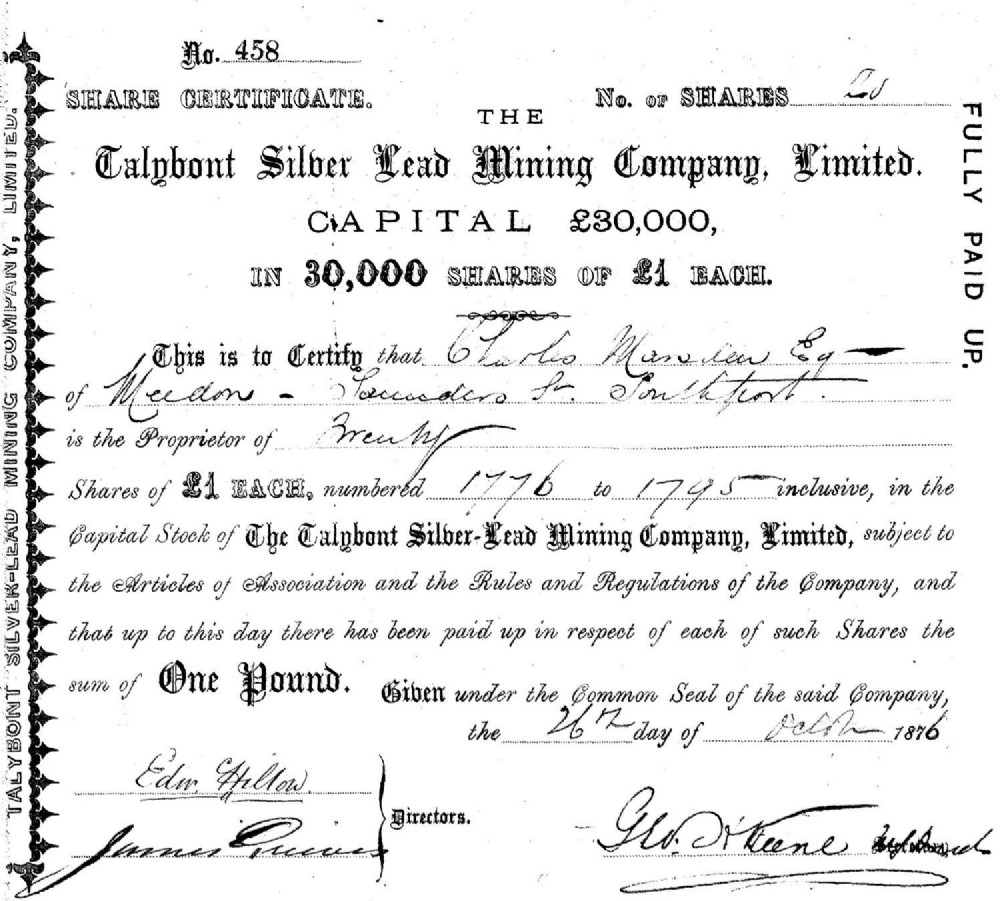 No. 458
SHARE CERTIFICATE.
No. OF SHARES 20
THE
Talybont Silver Lead Mining Company, Limited.
CAPITAL £30,000,
IN 30,000 SHARES OF £1 EACH.
This is to Certify that Charles Marsden Esq
of Meudon - Saunders St. Southport.
is the Proprietor of Twenty
Shares of £1 EACH, numbered 1776 to 1795 inclusive, in the
Capital Stock of The Talybont Silver-Lead Mining Company, Limited, subject to
the Articles of Association and the Rules and Regulations of the Company, and
that up to this day there has been paid up in respect of each of such Shares the
sum of One Pound. Given under the Common Seal of the said Company,
the 26th day of October 1876
Edw. Hilton.
James
Directors.
Geo.
FULLY PAID UP.
TALYBONT SILVER-LEAD MINING COMPANY, LIMITED.